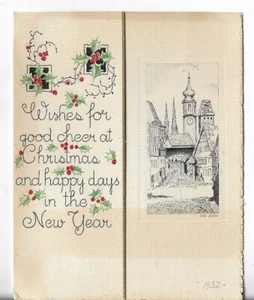 Wishes for
good cheer at
Christmas
and happy days
in the
New Year
1932